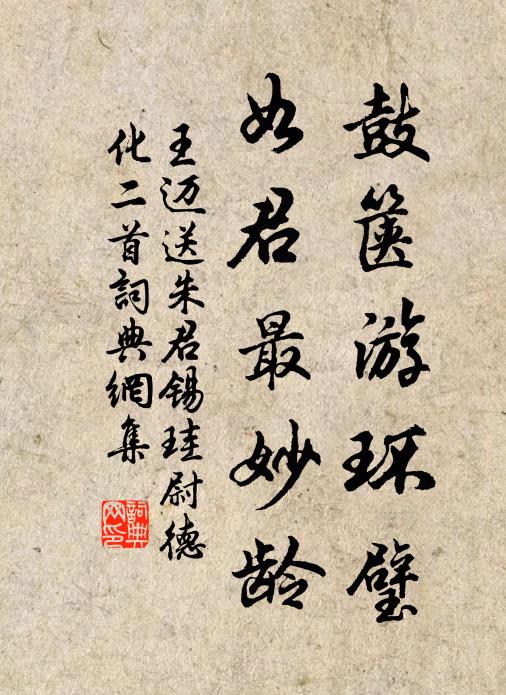 鼓箧游环璧
如君最妙龄
王迈送朱君锡珪尉德
化二首詞典網集
詞典網印